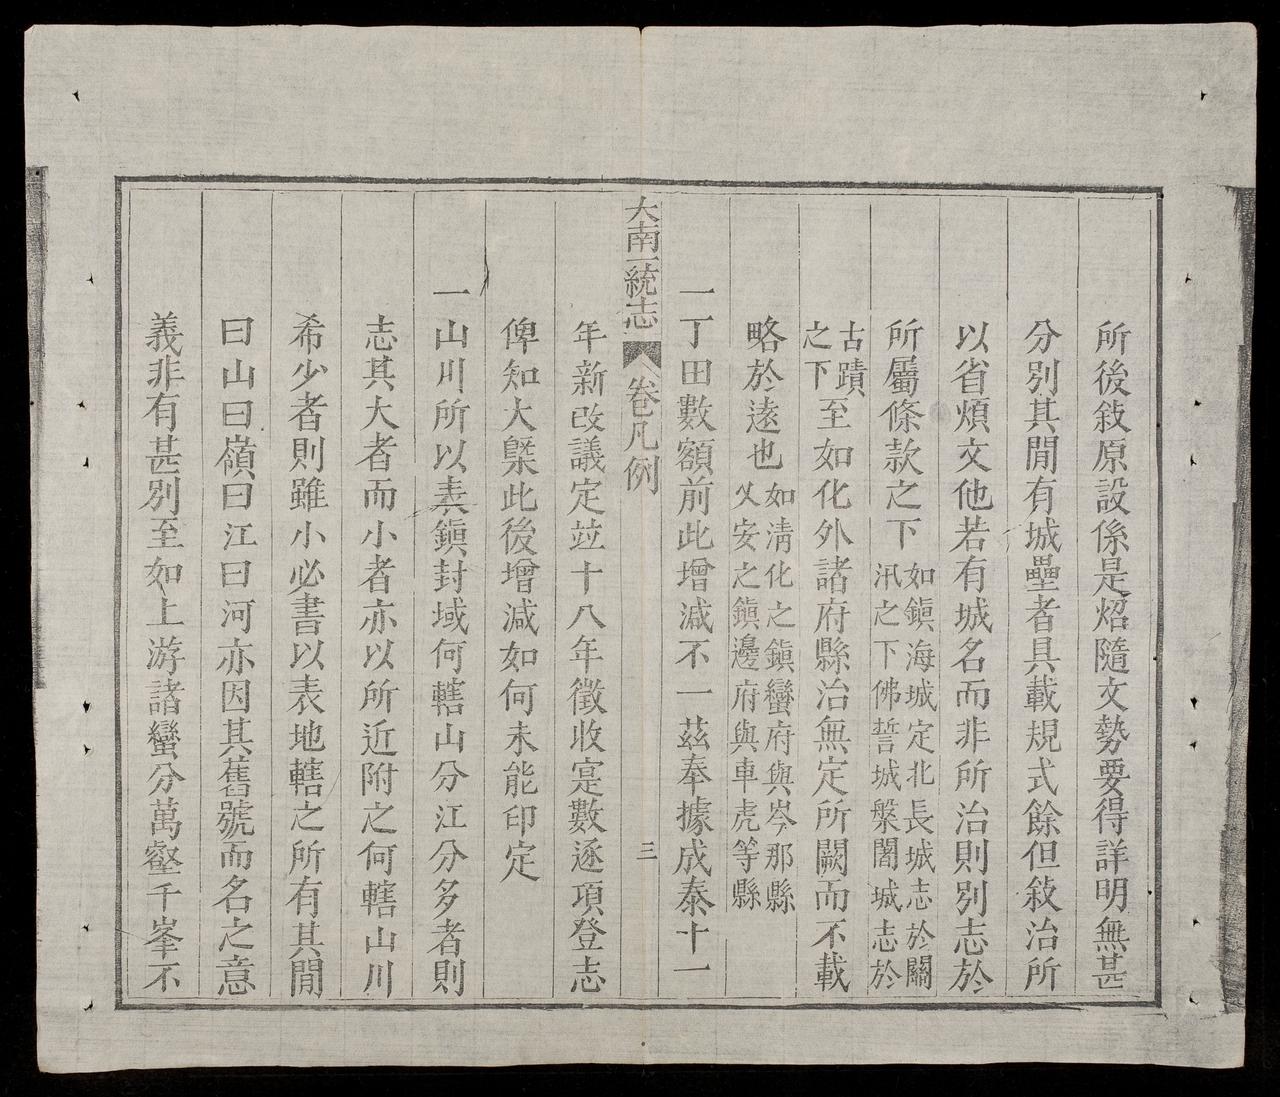 所後敍原設係是炤隨文勢要得詳明無甚
分別其閒有城壘者具載規式餘但敍治所
以省煩文他若有城名而非所治則別志於
所屬條款之下如鎭海城定北長城志於關
汛之下佛誓城槃闍城志於
古蹟
之下至如化外諸府縣治無定所闕而不載
略於逺也如淸化之鎭蠻府與岑那縣
乂安之鎭邊府與車虎等縣
一丁田數額前此增減不一茲奉據成泰十一
大南一統志 卷凡例 三
年新改議定竝十八年徵收寔數逐項登志
俾知大槩此後增減如何未能印定
一山川所以表鎭封域何轄山分江分多者則
志其大者而小者亦以所近附之何轄山川
希少者則雖小必書以表地轄之所有其閒
曰山曰嶺曰江曰河亦因其舊號而名之意
義非有甚別至如上游諸蠻分萬壑千峯不